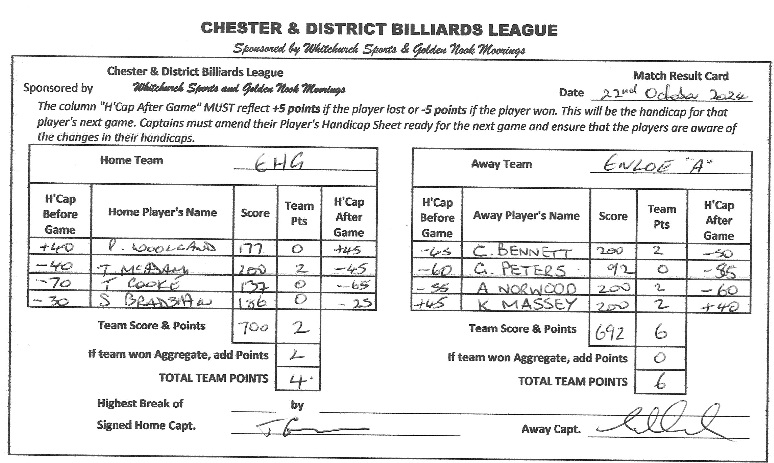 CHESTER & DISTRICT BILLIARDS LEAGUE
Sponsored by Whitchurch Sports & Golden Nook Moorings
Chester & District Billiards League
Match Result Card
Sponsored by Whitchurch Sports and Golden Nook Moorings
Date 22nd October 2024
The column "H'Cap After Game" MUST reflect +5 points if the player lost or -5 points if the player won. This will be the handicap for that
player's next game. Captains must amend their Player's Handicap Sheet ready for the next game and ensure that the players are aware of
the changes in their handicaps.
Home Team EHG
H'Cap Before Game Home Player's Name Score Team Pts H'Cap After Game
+40 P. WOOLLAND 177 0 +45
-40 T MCADAM 200 2 -45
-70 T COOKE 137 0 -65
-30 S BRADSHAW 186 0 -25
Team Score & Points 700 2
If team won Aggregate, add Points 2
TOTAL TEAM POINTS 4
Away Team ENLOE "A"
H'Cap Before Game Away Player's Name Score Team Pts H'Cap After Game
-45 C. BENNETT 200 2 -50
-60 G. PETERS 92 0 -55
-55 A NORWOOD 200 2 -60
+45 K MASSEY 200 2 +40
Team Score & Points 692 6
If team won Aggregate, add Points 0
TOTAL TEAM POINTS 6
Highest Break of by
Signed Home Capt.
Away Capt.